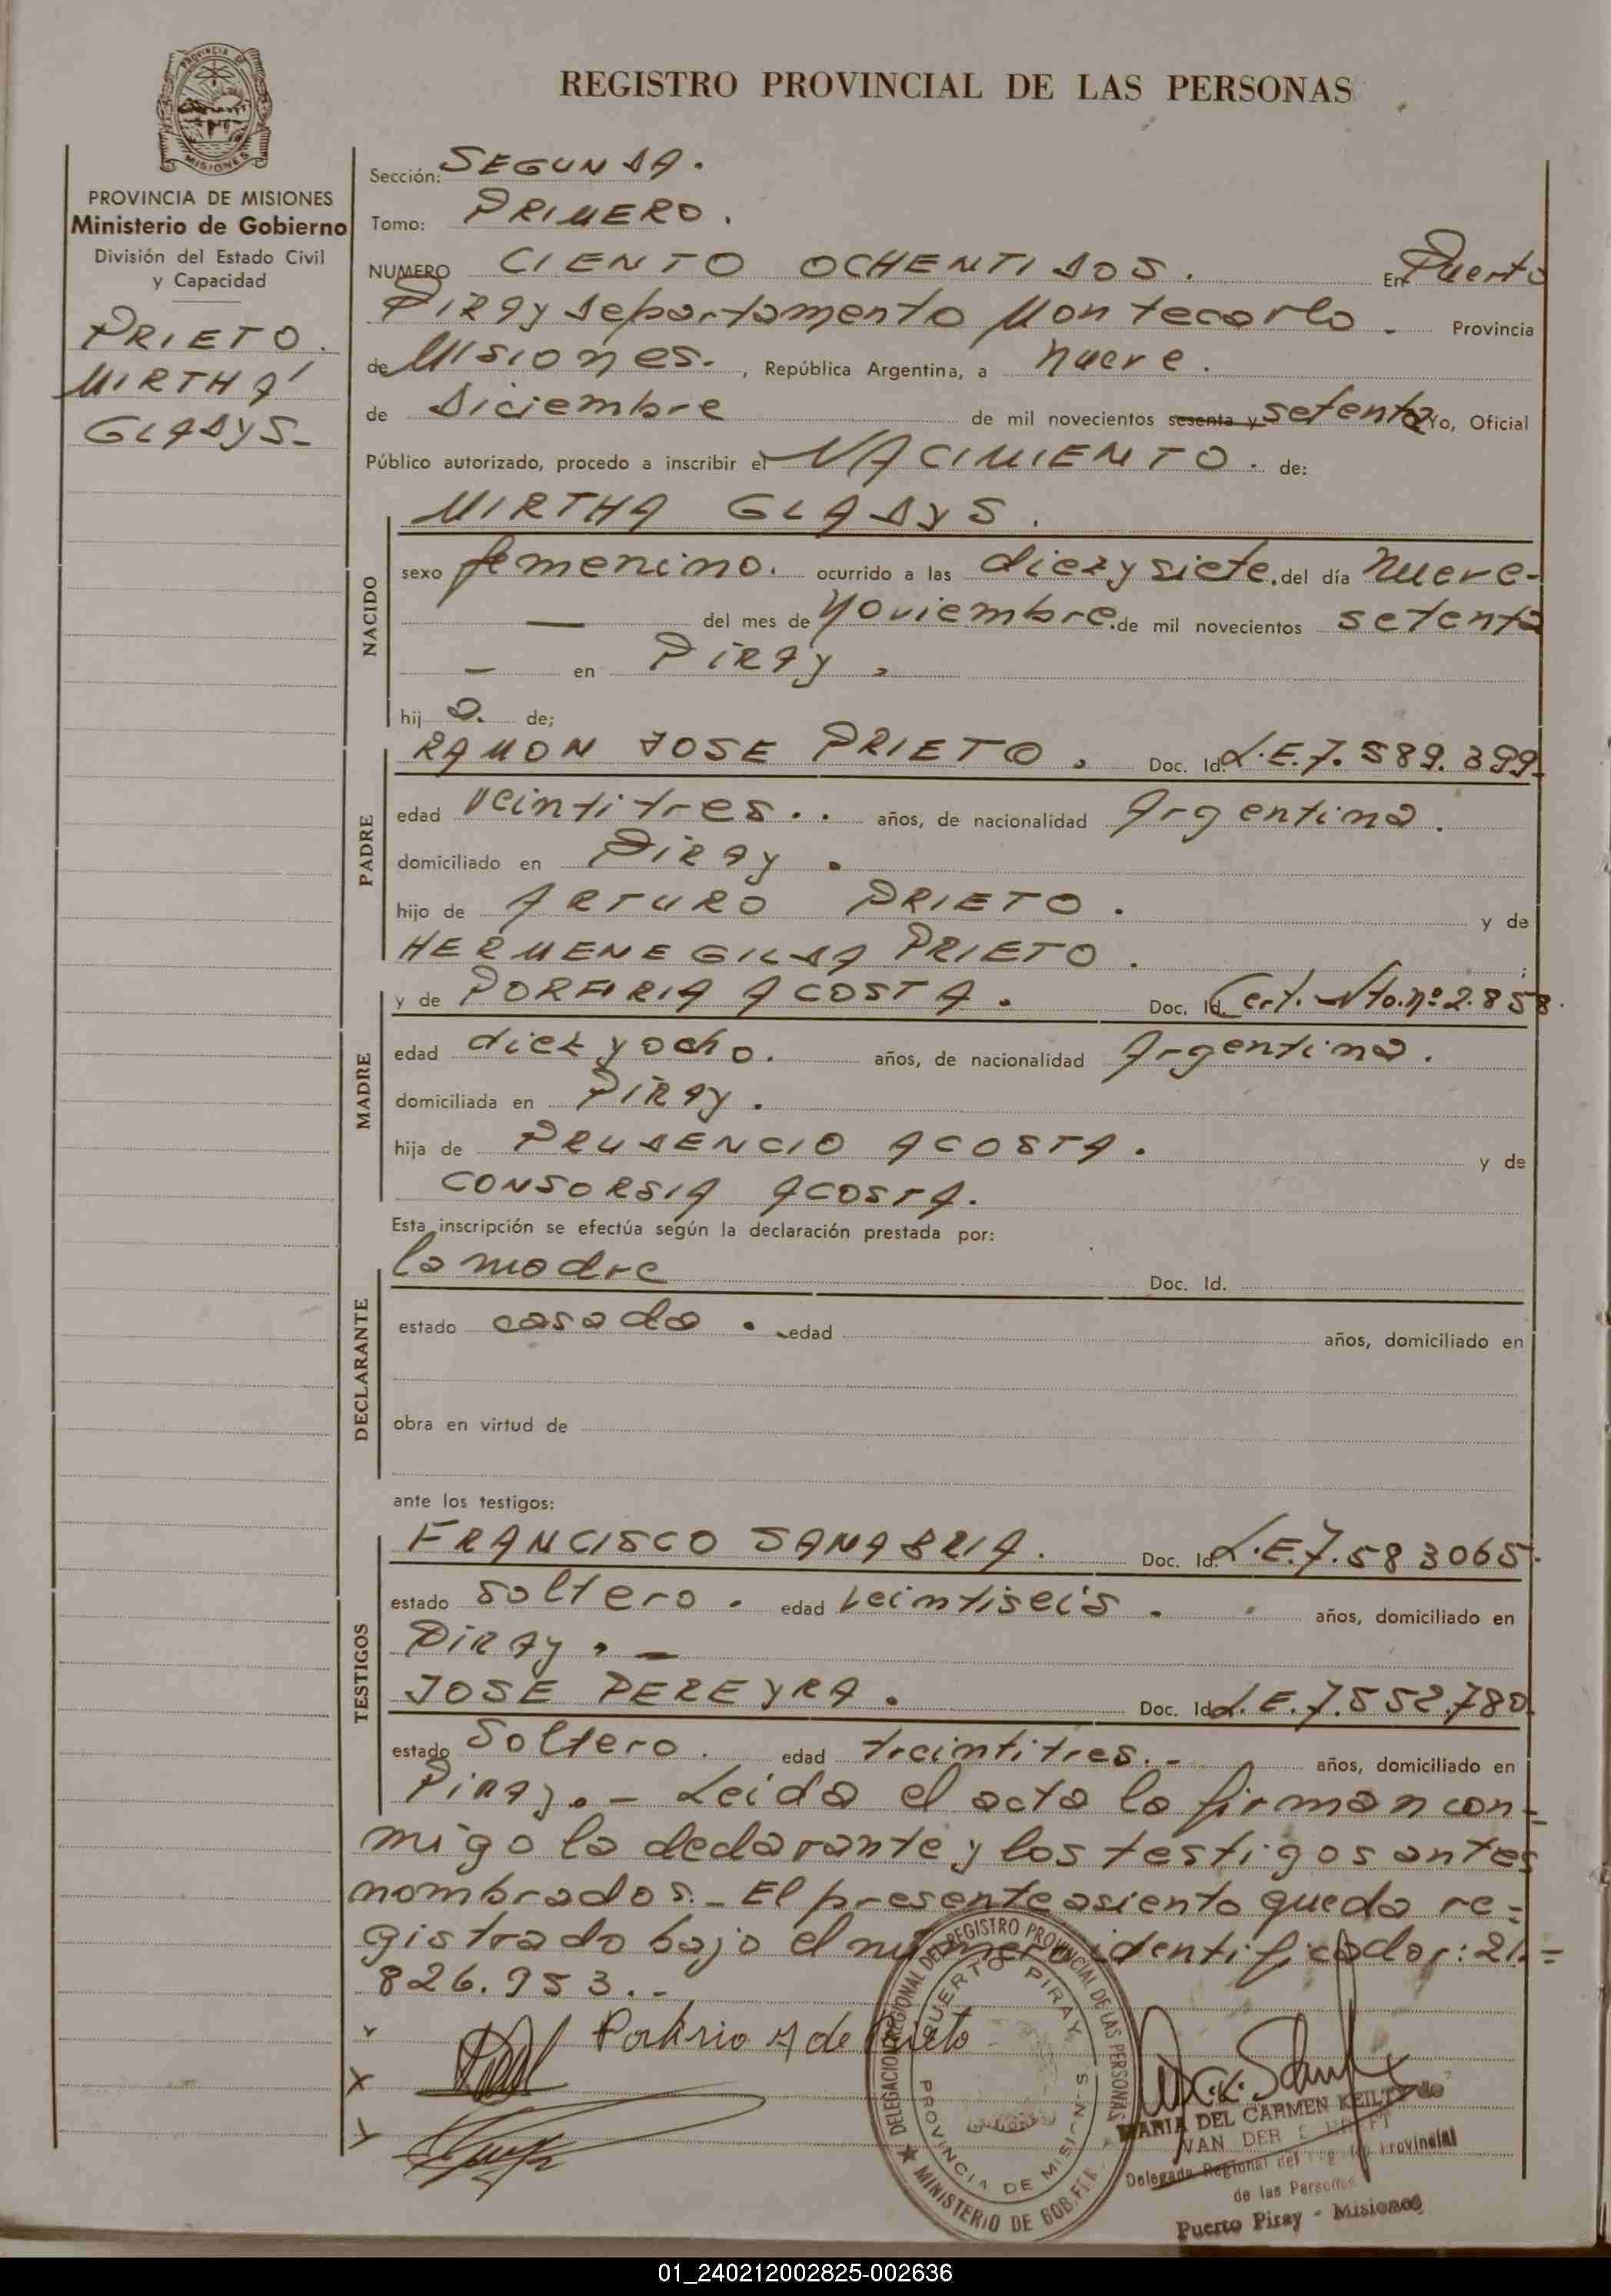 REGISTRO PROVINCIAL DE LAS PERSONAS
PROVINCIA DE
MISIONES
PROVINCIA DE MISIONES
Ministerio de Gobierno
División del Estado Civil
y Capacidad
PRIETO.
MIRTHA
GLADYS-
Sección: SEGUNDA.
Tomo: PRIMERO.
NUMERO CIENTO OCHENTIDOS. En Puerto
Piray departamento Montecarlo. Provincia
de Misiones. , República Argentina, a nueve.
de Diciembre de mil novecientos sesenta y setenta Yo, Oficial
Público autorizado, procedo a inscribir el NACIMIENTO. de:
NACIDO
MIRTHA GLADYS.
sexo femenino. ocurrido a las diez y siete. del día Nueve-
— del mes de Noviembre. de mil novecientos setenta
— en Piray.
hij a. de;
PADRE
RAMON JOSE PRIETO. Doc. Id. L.E.7.589.399.
edad veintitres.. años, de nacionalidad Argentina.
domiciliado en Piray.
hijo de ARTURO PRIETO. y de
HERMENEGILDA PRIETO. ;
MADRE
y de PORFIRIA ACOSTA. Doc. Id. Cert. Nto. nº 2.858.
edad diez y ocho. años, de nacionalidad Argentina.
domiciliada en Piray.
hija de PRUDENCIO ACOSTA. y de
CONSORSIA ACOSTA.
Esta inscripción se efectúa según la declaración prestada por:
DECLARANTE
la madre Doc. Id.
estado casada. edad años, domiciliado en
obra en virtud de
ante los testigos:
TESTIGOS
FRANCISCO SANABRIA. Doc. Id. L.E.7.583065.
estado soltero. edad veintiseis. años, domiciliado en
Piray. —
JOSE PEREYRA. Doc. Id. L.E.7.552.780.
estado Soltero. edad treintitres.- años, domiciliado en
Piray.- Leida el acta la firman con-
migo la declarante y los testigos antes
nombrados.- El presente asiento queda re-
gistrado bajo el número identificador: 21.=
826.953.-
Porfiria A de Prieto
DELEGACION REGIONAL DEL REGISTRO PROVINCIAL DE LAS PERSONAS
PUERTO PIRAY
PROVINCIA DE MISIONES
★ MINISTERIO DE GOB.
MARIA DEL CARMEN KEILTY de
VAN DER
Delegada Regional del Provincial
de las Personas
Puerto Piray - Misiones
01_240212002825-002636